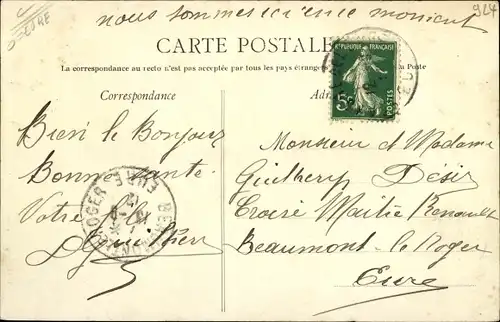 nous sommes ici en ce moment
924
EURE
CARTE POSTALE
La correspondance au recto n'est pas acceptée par tous les pays étrangers la Poste
Correspondance
RÉPUBLIQUE FRANÇAISE
5c
POSTES
Bien le Bonjour
Bonne santé
Votre fils
OGER
EURE
Monsieur et Madame
Désir
Croisé Maitre Renault
Beaumont le Roger
Eure